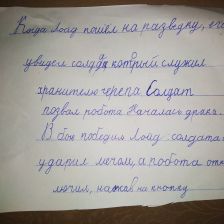 Когда Лойд пошёл на разведку, его
увидел солдат который служил
хранителю черепа. Солдат
позвал робота. Началась драка.
В бою победил Лойд солдата
ударил мечом, а робота отк
лючил, нажав на кнопку